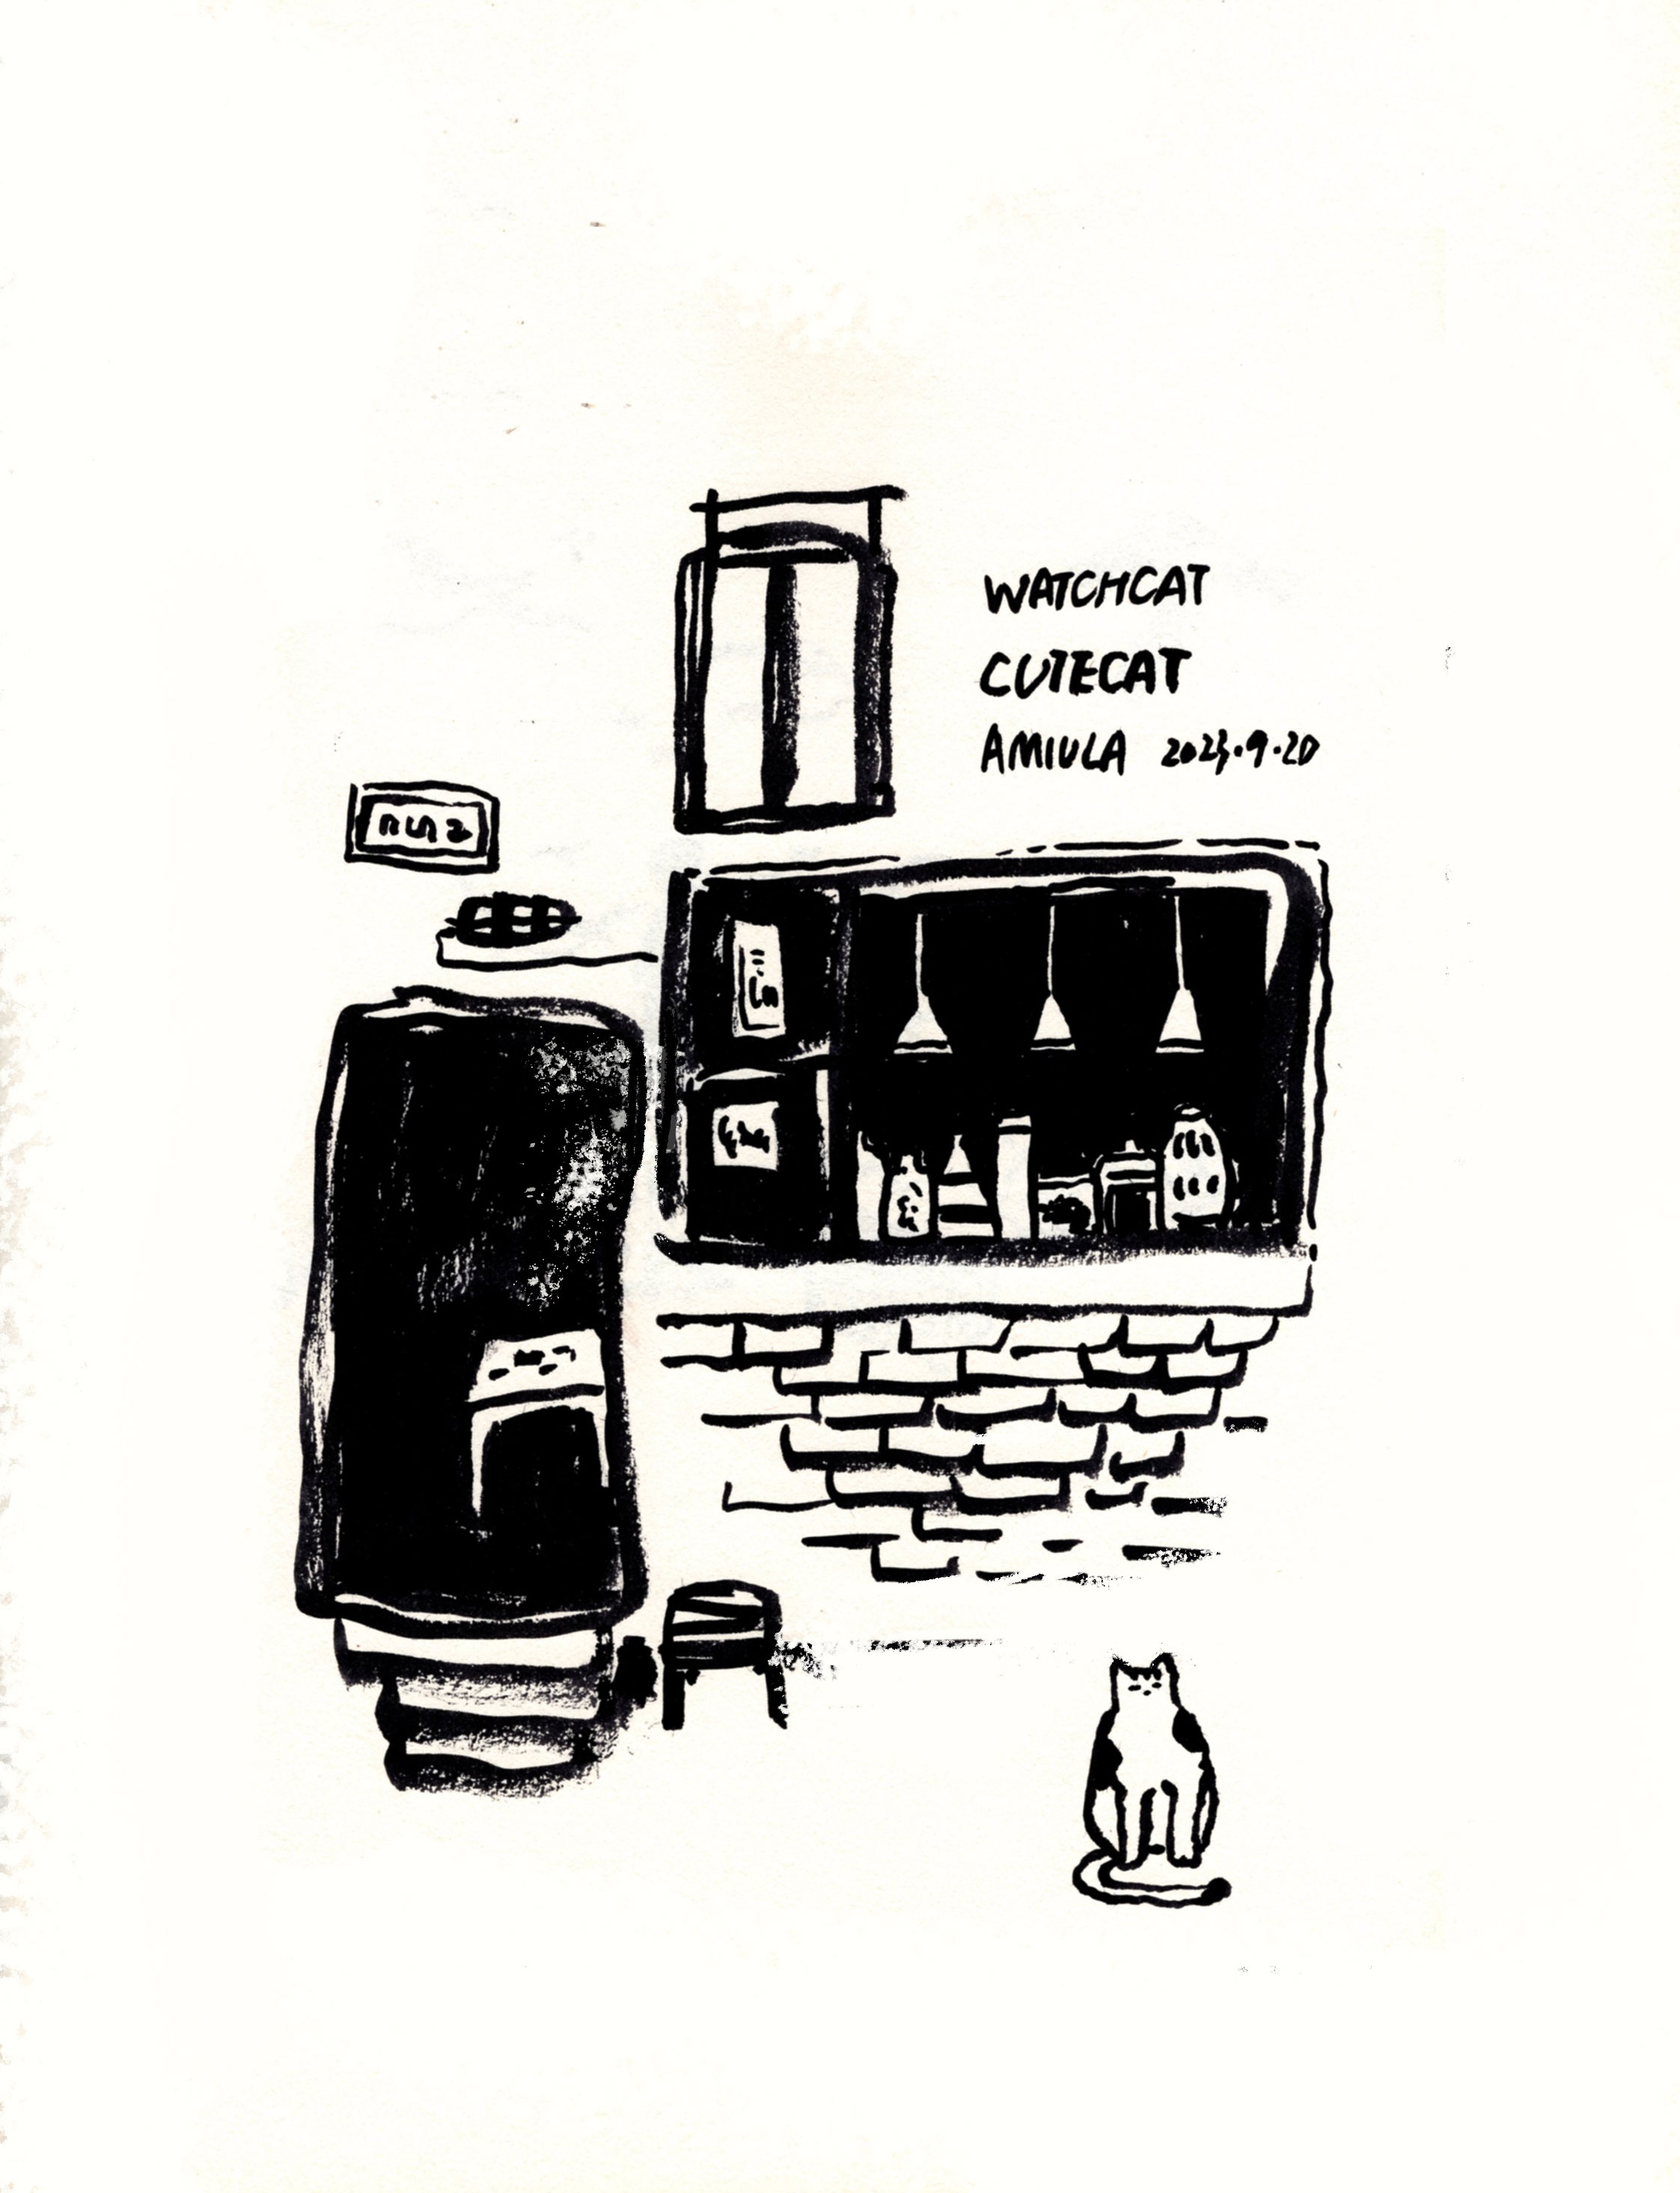 WATCHCAT
CUTECAT
AMIULA 2023.9.20